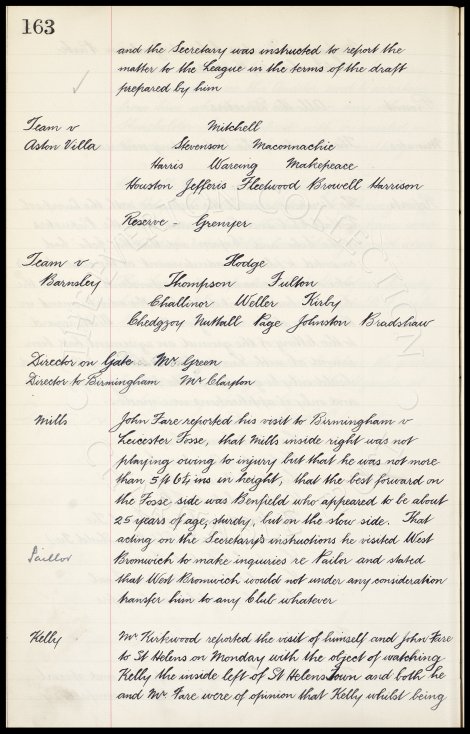 163
and the Secretary was instructed to report the
matter to the League in the terms of the draft
prepared by him
Team v Mitchell
Aston Villa Stevenson Maconnachie
Harris Wareing Makepeace
Houston Jefferis Fleetwood Browell Harrison
Reserve - Grenyer
Team v Hodge
Barnsley Thompson Fulton
Challinor Weller Kirby
Chedgzoy Nuttall Page Johnston Bradshaw
Director on Gate Mr Green
Director to Birmingham Mr Clayton
Mills John Fare reported his visit to Birmingham v
Leicester Fosse, that Mills inside right was not
playing owing to injury but that he was not more
than 5 ft 6¼ ins in height, that the best forward on
the Fosse side was Benfield who appeared to be about
25 years of age, sturdy, but on the slow side. That
acting on the Secretary's instructions he visited West
Pailor Bromwich to make inquiries re Pailor and stated
that West Bromwich would not under any consideration
transfer him to any Club whatever
Kelly Mr Kirkwood reported the visit of himself and John Fare
to St Helens on Monday with the object of watching
Kelly the inside left of St Helens Town and both he
and Mr Fare were of opinion that Kelly whilst being